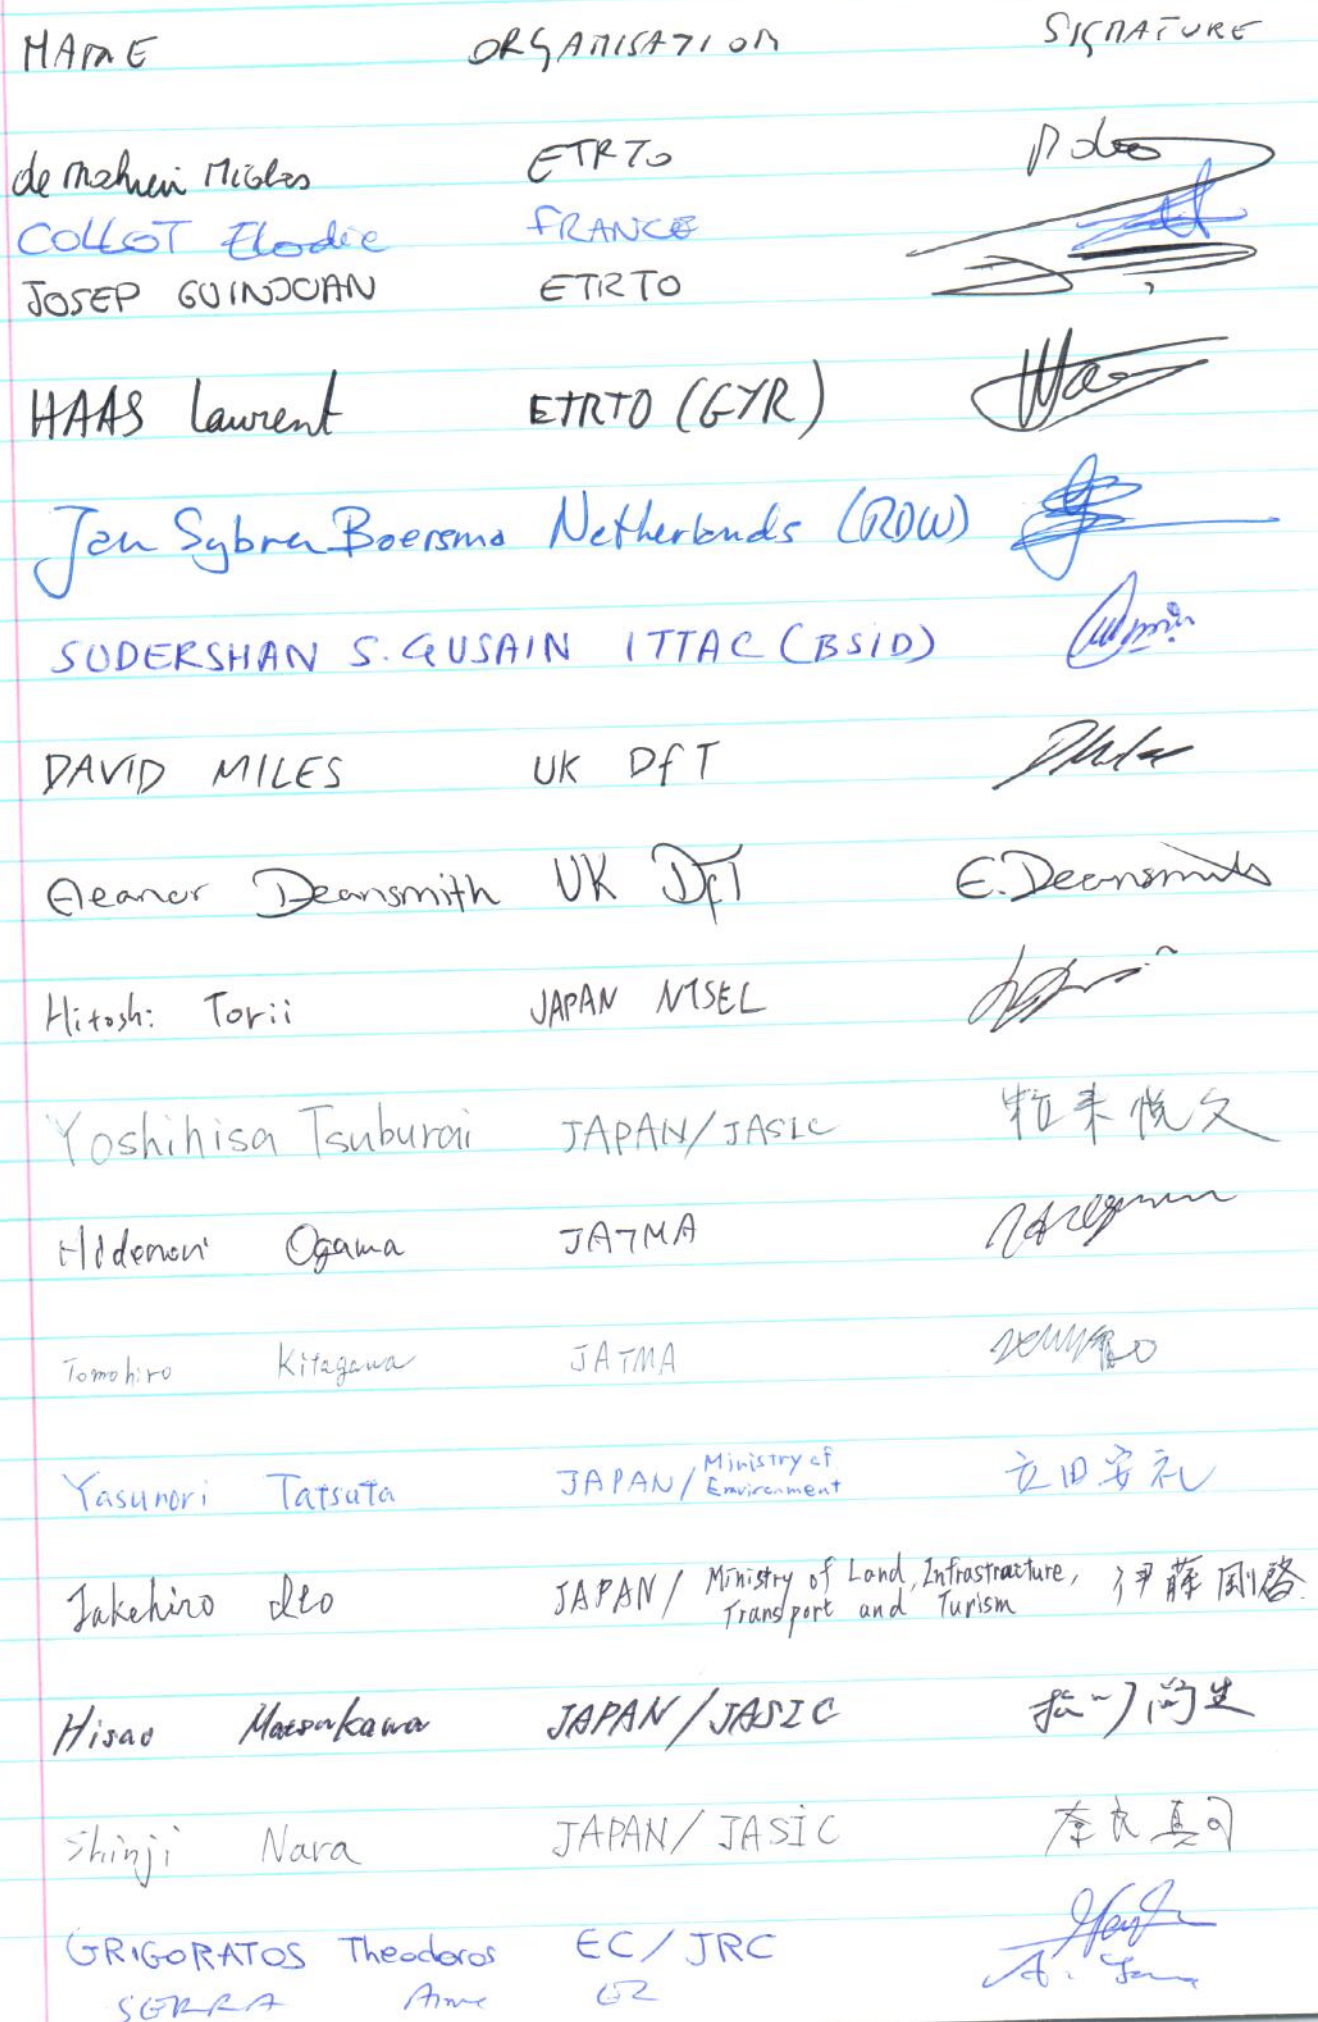 NAME ORGANISATION SIGNATURE
de Mahieu Nicolas ETRTO
COLLOT Elodie FRANCE
JOSEP GUINJOAN ETRTO
HAAS Laurent ETRTO (GYR)
Jan Sybren Boersma Netherlands (RDW)
SUDERSHAN S. GUSAIN ITTAC (BSID)
DAVID MILES UK DfT
Eleanor Deansmith UK DfT E. Deansmith
Hitoshi Torii JAPAN NTSEL
Yoshihisa Tsuburai JAPAN/JASIC 粒来悦久
Hidenori Ogawa JATMA
Tomohiro Kitagawa JATMA
Yasunori Tatsuta JAPAN/Ministry of Environment 立田安礼
Takehiro Ito JAPAN/ Ministry of Land, Infrastracture, 伊藤剛啓
Transport and Turism
Hisao Matsukawa JAPAN/JASIC 尚生
Shinji Nara JAPAN/JASIC 奈良真司
GRIGORATOS Theodoros EC/JRC
SERRA Anne